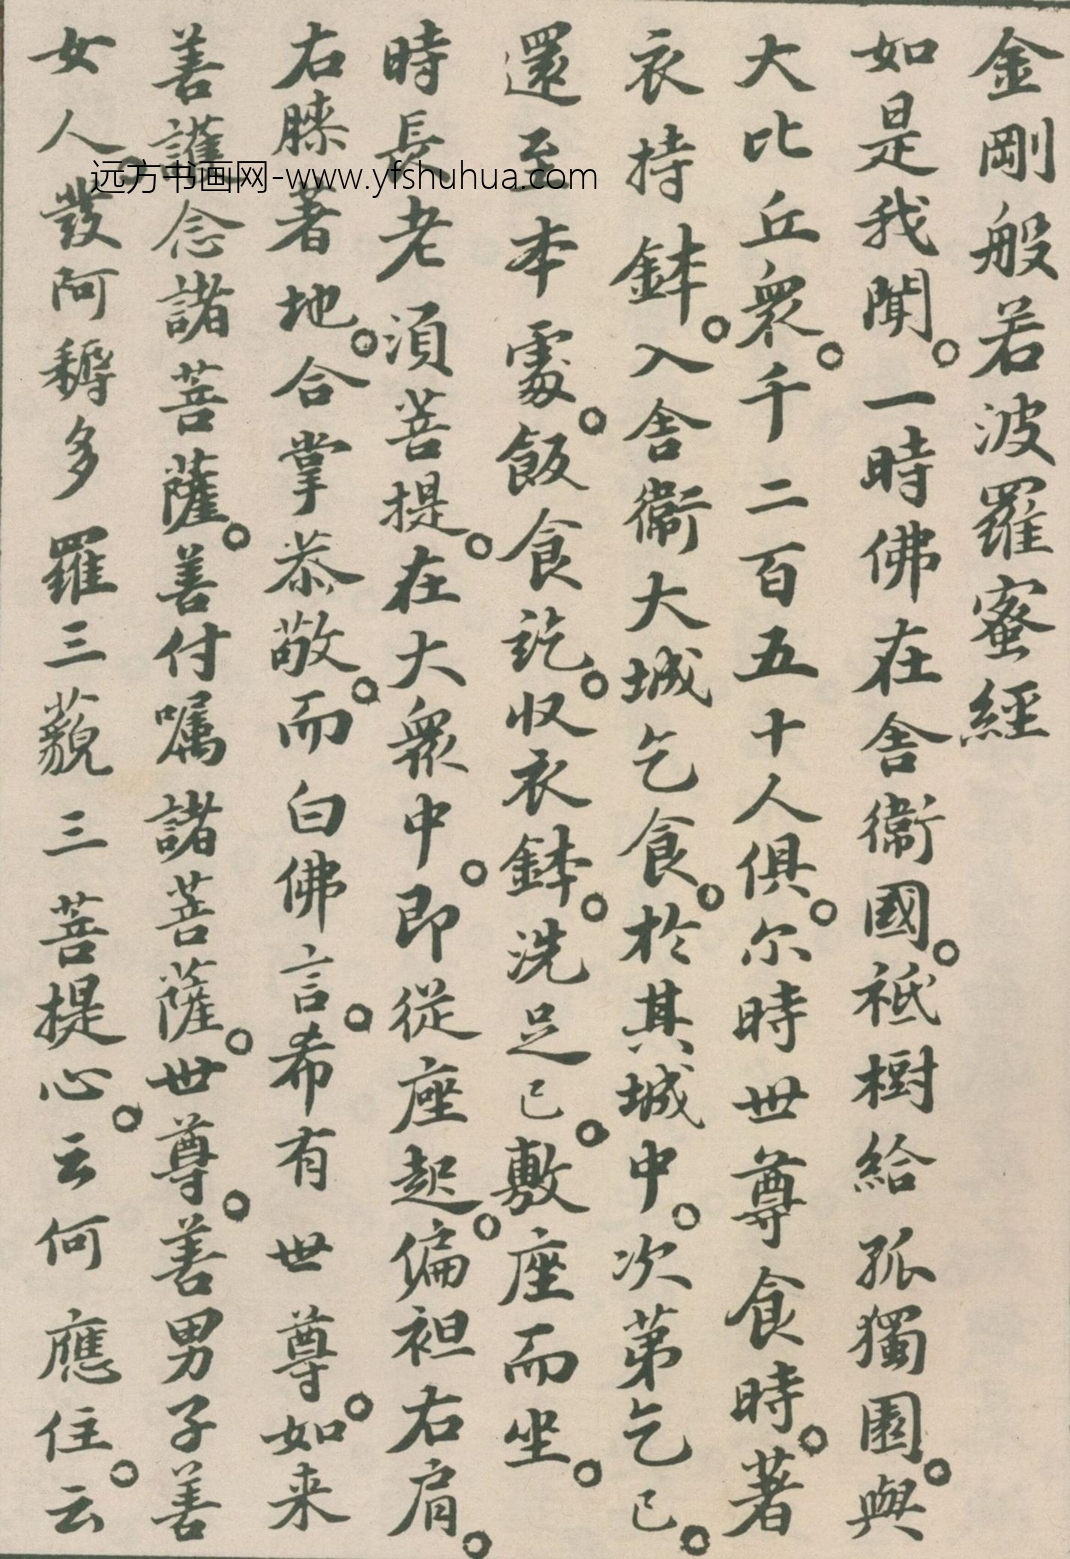 金剛般若波羅蜜經
如是我聞。一時佛在舍衞國。祇樹給孤獨園。與
大比丘衆。千二百五十人俱。尔時世尊食時。著
衣持鉢。入舍衞大城乞食。於其城中。次第乞已。
還至本處。飯食訖。收衣鉢。洗足已。敷座而坐。
時長老湏菩提。在大衆中。即從座起。偏袒右肩。
右膝著地。合掌恭敬。而白佛言。希有世尊。如来
善護念諸菩薩。善付嘱諸菩薩。世尊。善男子善
女人。發阿耨多羅三藐三菩提心。云何應住。云
远方书画网-www.yfshuhua.com